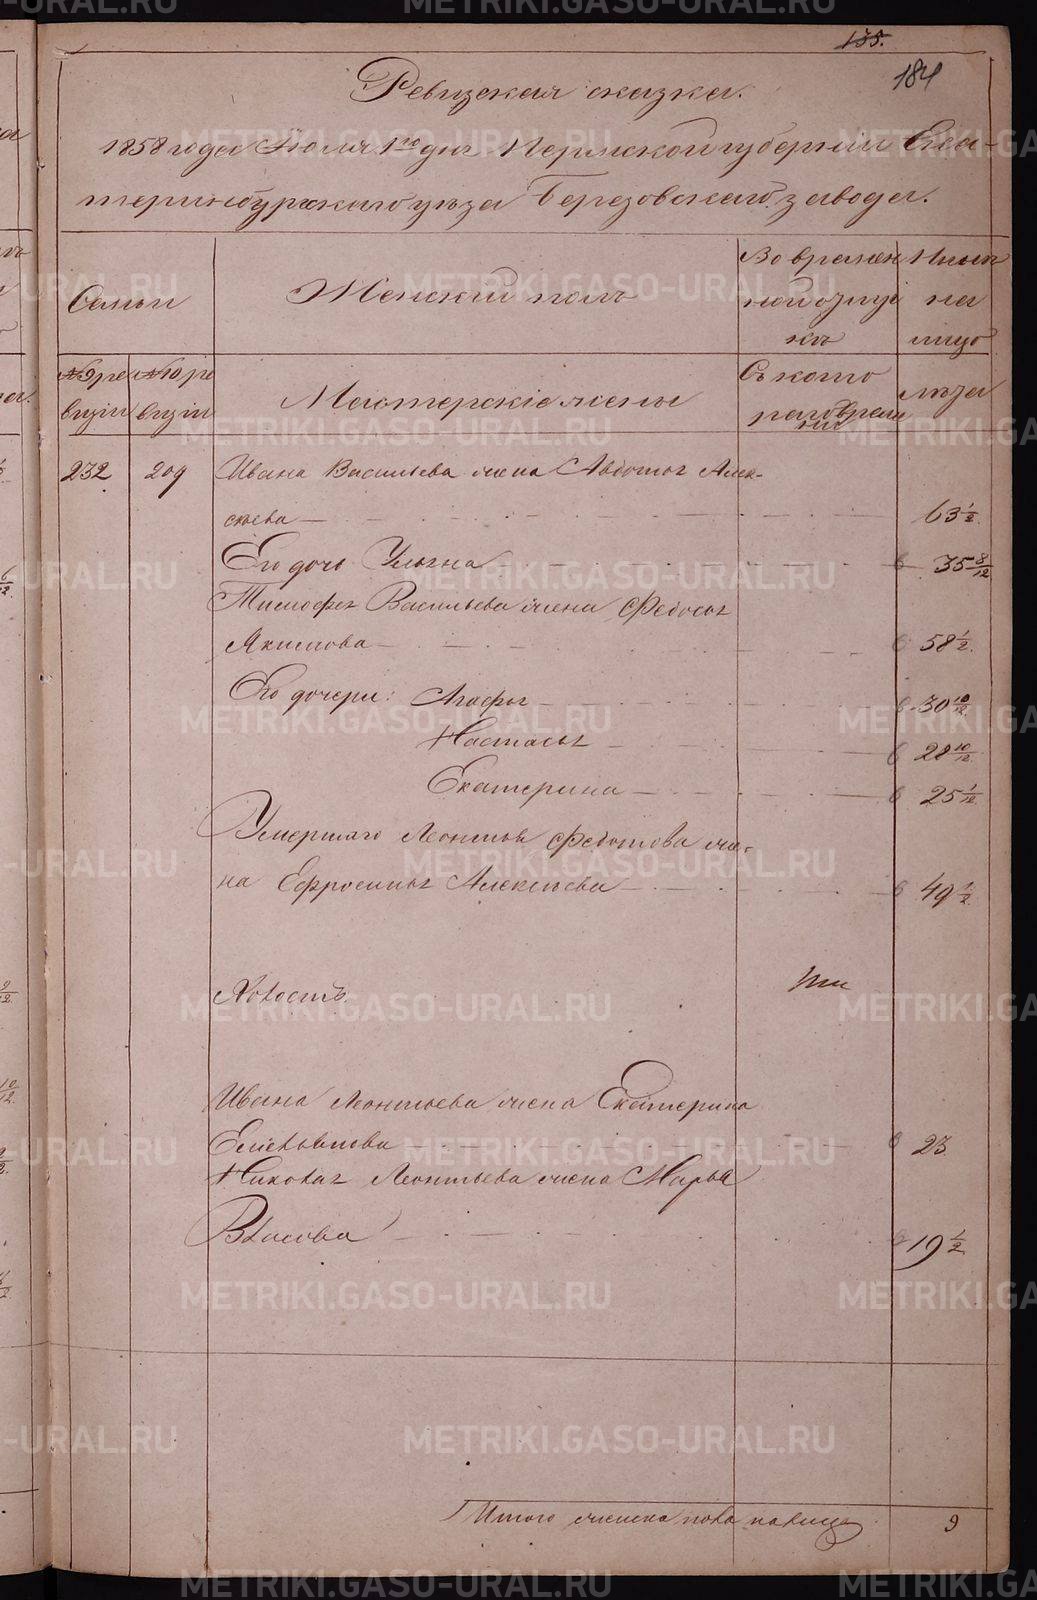 155.
184
Ревизская сказка.
1858 года Июля 1го дня Пермской губерніи Ека-
теринбургскаго уѣзда Березовскаго завода.
Семьи
Женскій полъ
Во времен
ной отлуч
кѣ
Нынѣ
на
лицо
№ 9 ре
визіи
№ 10 ре
визіи
Мастерскіе жены
Съ кото
раго врем
лѣта
232 209 Ивана Васильева жена Авдотья Алек-
сѣева 63 1/2
Его дочь Ульяна 35 8/12
Тимофея Васильева жена Федосья
Якимова 58 1/2.
Его дочери: Агафья 30 10/12
Настасья 28 10/12.
Екатерина 25 1/12
Умершаго Леонтья Федотова же-
на Ефросинья Алексѣева 49 1/2
Ивана Леонтьева жена Екатерина
23
Николая Леонтьева жена Марья
Власова 19 1/2
Итого женска пола на лицо 9
METRIKI.GASO-URAL.RU